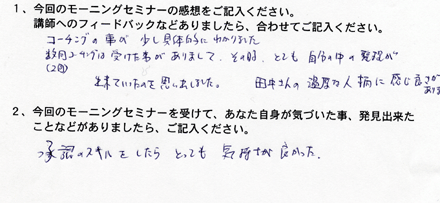 1、今回のモーニングセミナーの感想をご記入ください。
講師へのフィードバックなどありましたら、合わせてご記入ください。
コーチングの事が少し具体的にわかりました
コーチングは受けた事がありまして、その時、とても自分の中の発現が
(2回)
出来ていたのを思い出しました。 田中さんの温厚な人柄に感じ良さが
あり
2、今回のモーニングセミナーを受けて、あなた自身が気づいた事、発見出来た
ことなどがありましたら、ご記入ください。
承認のスキルをしたら とっても 気持ちが良かった.